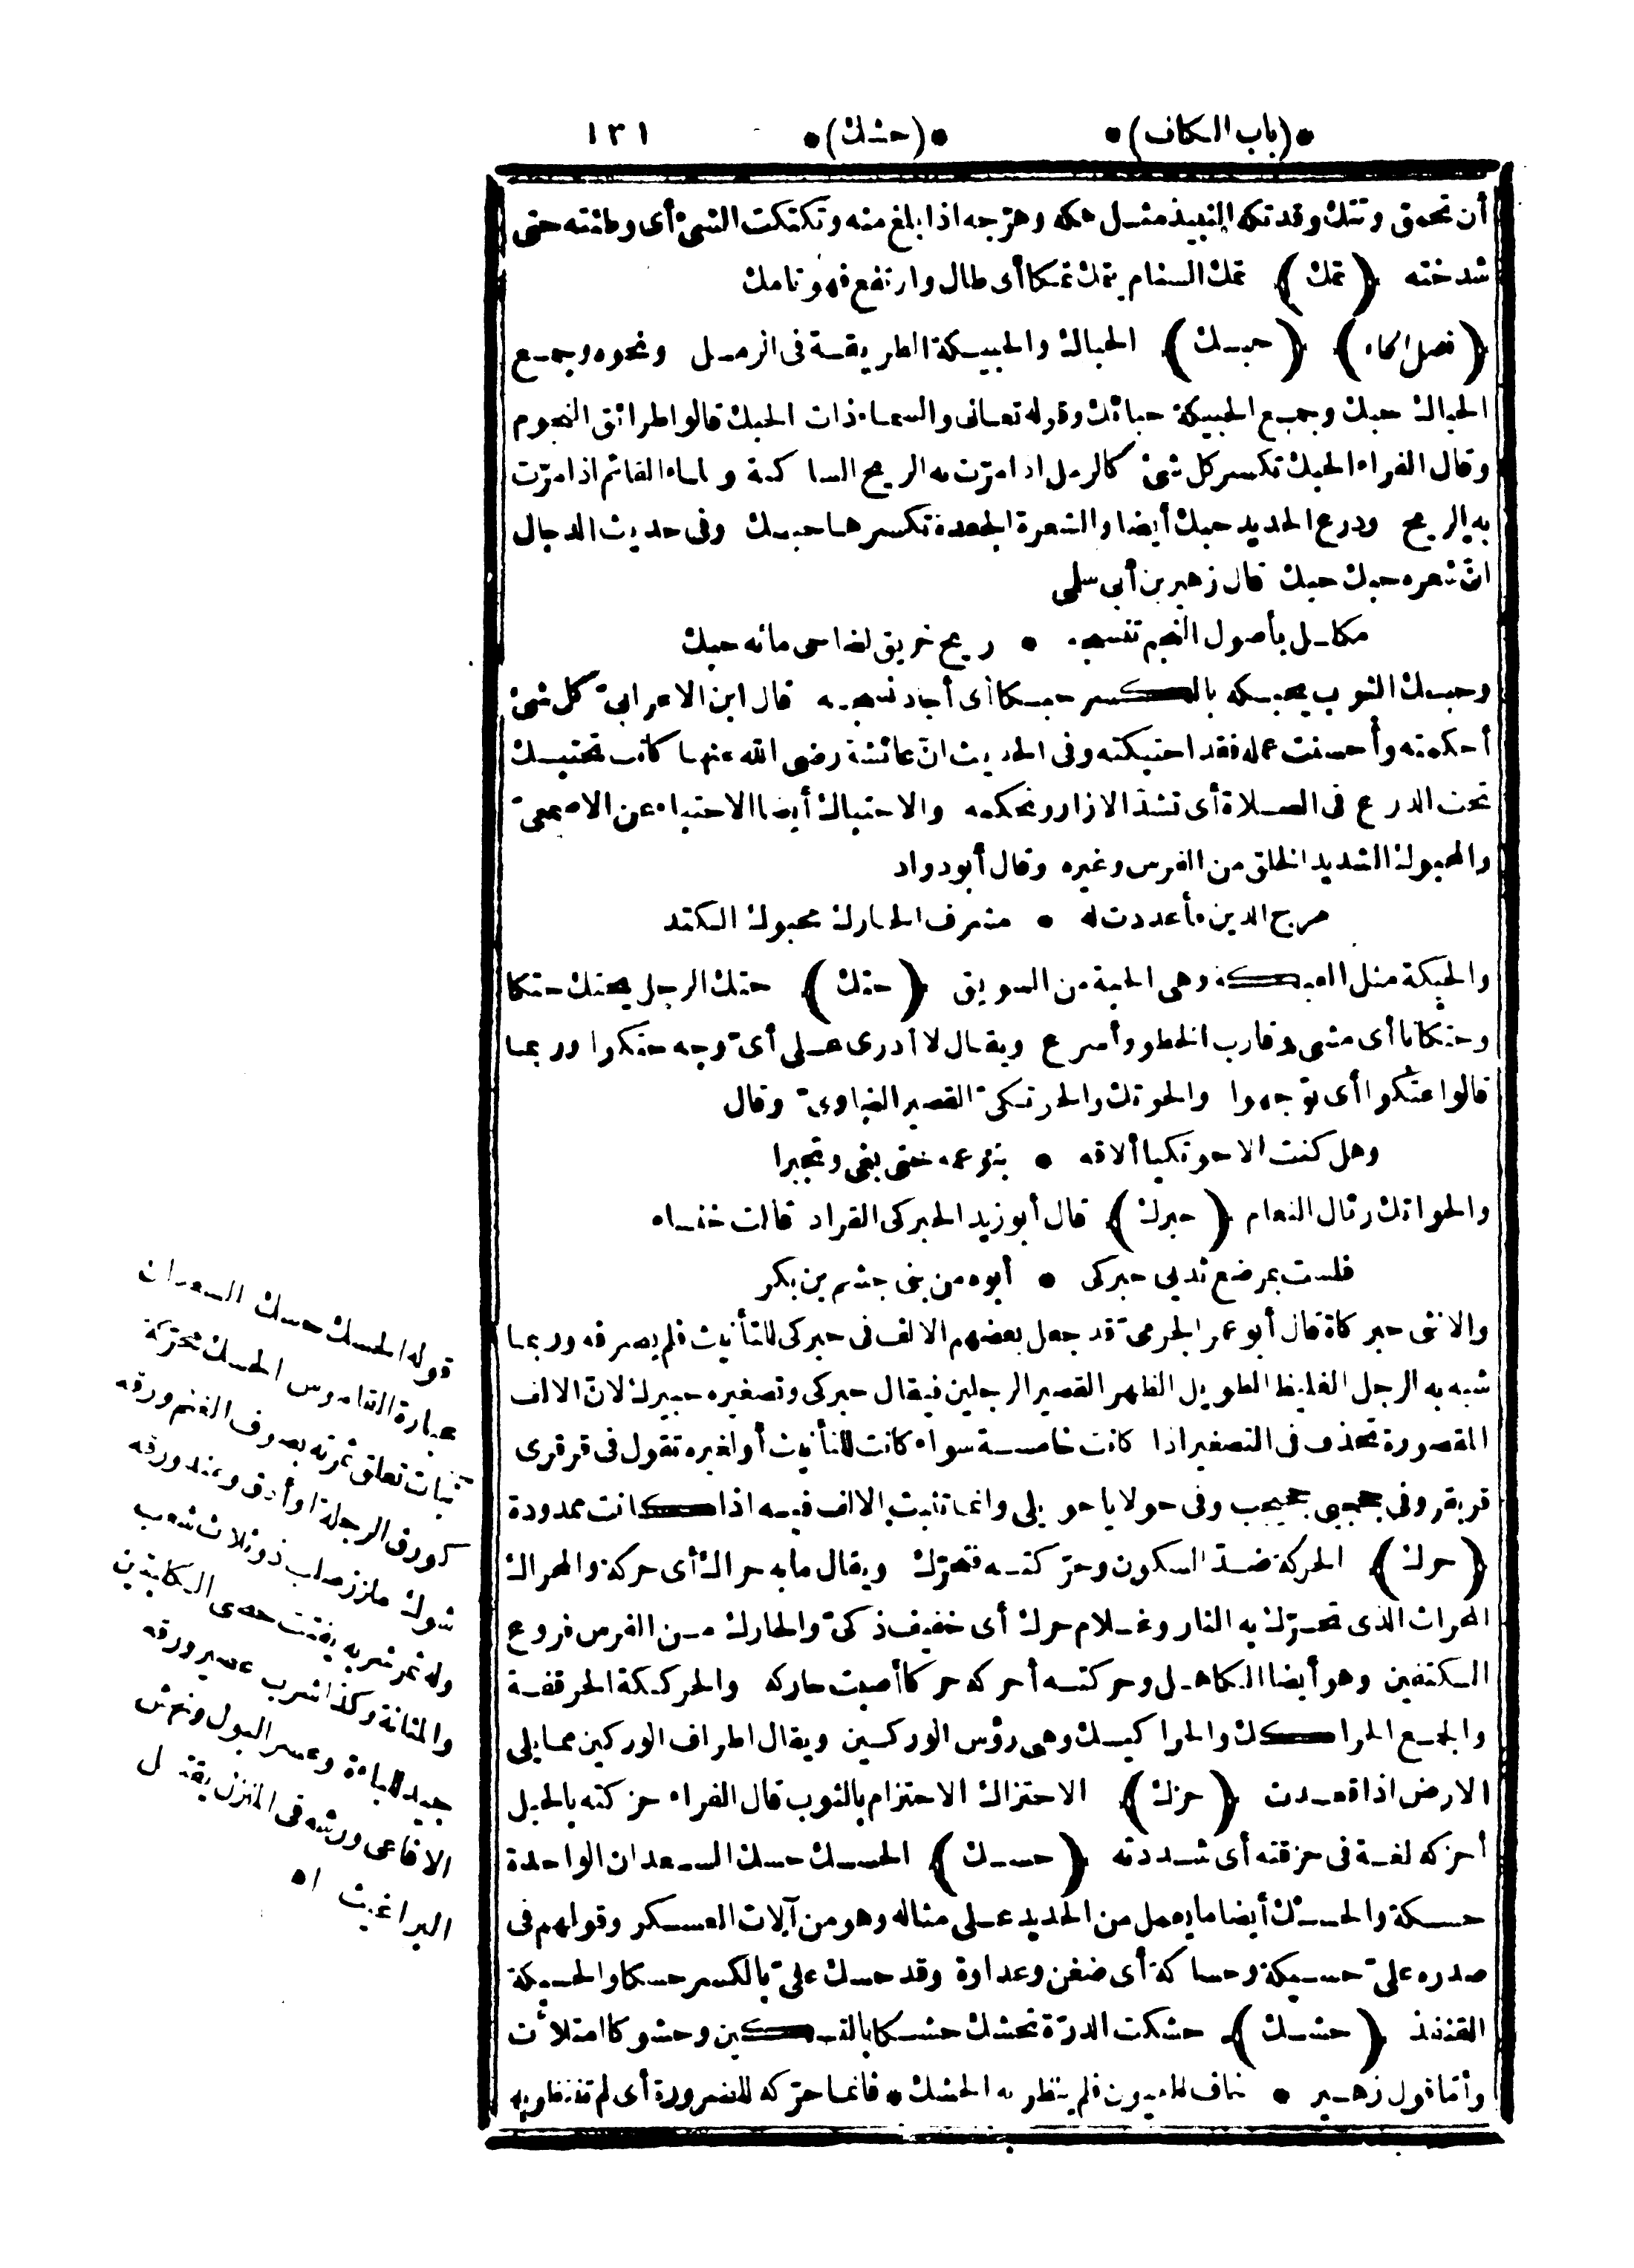 *(باب الكاف)* *(حشك)* ١٣١
أن تحمق وتتك وقد تكه النبيذ مثل هكه وهرّجه اذا بلغ منه وتكتكت الشئ أى وطئته حتى
شدخته (تمك) تمك السنام يتمك تمكا أى طال وارتفع فهو تامك
(فصل الحاء) (حبك) الحباك والحبيكة الطريقة فى الرمل ونحوه وجمع
الحباك حبك وجمع الحبيكة حبائك وقوله تعالى والسماء ذات الحبك قالوا طرائق النجوم
وقال الفراء الحبك تكسر كل شئ كالرمل اذا مرّت به الريح الساكنة والماء القائم اذا مرّت
به الريح ودرع الحديد حبك أيضا والشعرة الجعدة تكسرها حبك وفى حديث الدجال
انّ شعره حبك حبك قال زهير بن أبى سلمى
مكلل بأصول النجم تنسجه * ريح خريق لضاحى مائه حبك
وحبك الثوب يحبكه بالكسر حبكا أى أجاد نسجه قال ابن الاعرابىّ كل شئ
أحكمته وأحسنت عمله فقد احتبكته وفى الحديث انّ عائشة رضى الله عنها كانت تحتبك
تحت الدرع فى الصلاة أى تشدّ الازار وتحكمه والاحتباك أيضا الاحتباء عن الاصمعىّ
والمحبوك الشديد الخلق من الفرس وغيره وقال أبو دواد
مرج الدين فأعددت له * مشرف الحارك محبوك الكتد
والحبكة مثل العبكة وهى الحبة من السويق (حتك) حتك الرجل يحتك حتكا
وحتكانا أى مشى وقارب الخطو وأسرع ويقال لا أدرى على أىّ وجه حتكوا وربما
قالوا عتكوا أى توجهوا والحوتك والحوتكىّ القصير الضاوىّ وقال
وهل كنت الا حوتكيا ألاقه * بنو عمه حتى بغى وتجبرا
والحواتك رئال النعام (حبرك) قال أبو زيد الحبركى القراد قالت خنساء
فلست بمرضع ثديى حبركى * أبوه من بنى جشم بن بكر
والانثى حبركاة قال أبو عمر الجرمىّ قد جعل بعضهم الالف فى حبركى للتأنيث فلم يصرفه وربما
شبه به الرجل الغليظ الطويل الظهر القصير الرجلين فيقال حبركى وتصغيره حبيرك لانّ الالف
المقصورة تحذف فى التصغير اذا كانت خامسة سواء كانت للتأنيث أو لغيره تقول فى قرقرى
قريقر وفى جحجبى جحيجب وفى حولايا حويلى وانما تثبت الالف فيه اذا كانت ممدودة
(حرك) الحركة ضدّ السكون وحرّكته فتحرّك ويقال ما به حراك أى حركة والمحراك
المحراث الذى تحرّك به النار وغلام حرك أى خفيف ذكىّ والحارك من الفرس فروع
الكتفين وهو أيضا الكاهل وحركته أحركه حركا أصبت حاركه والحركـكة الحرقفة
والجمع الحراكك والحراكيك وهى رؤس الوركين ويقال اطراف الوركين مما يلى
الارض اذا قعدت (حزك) الاحتزاك الاحتزام بالثوب قال الفراء حزكته بالحبل
أحزكه لغة فى حزقته أى شددته (حسك) الحسك حسك السعدان الواحدة
حسكة والحسك أيضا ما يعمل من الحديد على مثاله وهو من آلات العسكر وقولهم فى
صدره علىّ حسيكة وحساكة أى ضغن وعداوة وقد حسك علىّ بالكسر حسكا والحسيكة
القنفذ (حشك) حشكت الدرّة تحشك حشكا بالتسكين وحشوكا امتلأت
وأمّا قول زهير * خاف العيون فلم ينظر به الحشك * فانما حرّكه للضرورة أى لم تنتظر به
قوله الحسك حسك السعدان
عبارة القاموس الحسك محرّكة
نبات تعلق ثمرته بصوف الغنم ورقه
كورق الرجلة أو أدق وعند ورقه
شوك ملزز صلب ذو ثلاث شعب
وله ثمر شربه يفتت حصى الكليتين
والمثانة وكذا شرب عصير ورقه
جيد للباءة وعسر البول ونهش
الافاعى ورشه فى المنزل يقتل
البراغيث اه